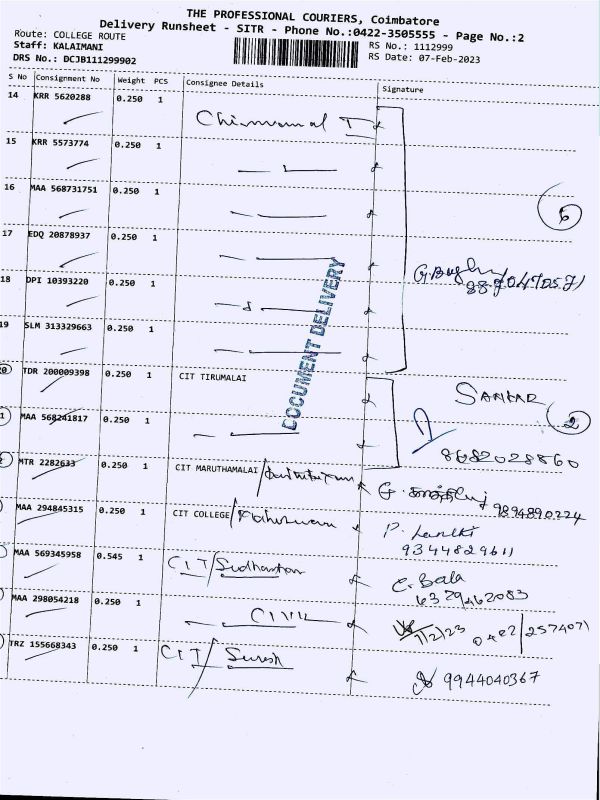 THE PROFESSIONAL COURIERS, Coimbatore
Delivery Runsheet - SITR - Phone No.:0422-3505555 - Page No.:2
Route: COLLEGE ROUTE
Staff: KALAIMANI
DRS No.: DCJB111299902
RS No.: 1112999
RS Date: 07-Feb-2023
S No Consignment No Weight PCS Consignee Details Signature
14 KRR 5620288 0.250 1
15 KRR 5573774 0.250 1
16 MAA 568731751 0.250 1
6
17 EDQ 20878937 0.250 1
18 DPI 10393220 0.250 1
DOCUMENT DELIVERY
19 SLM 313329663 0.250 1
20 TDR 200009398 0.250 1 CIT TIRUMALAI
SANKAR
2
1 MAA 568241817 0.250 1
8682028860
2 MTR 2282633 0.250 1 CIT MARUTHAMALAI
G.
9894890224
MAA 294845315 0.250 1 CIT COLLEGE
P.
9344829611
MAA 569345958 0.545 1 CIT/
C. Bala
6379462083
MAA 298054218 0.250 1 CIVIL
7/2/23 0422/2574071
TRZ 155668343 0.250 1 CIT/ Suresh
9944040367